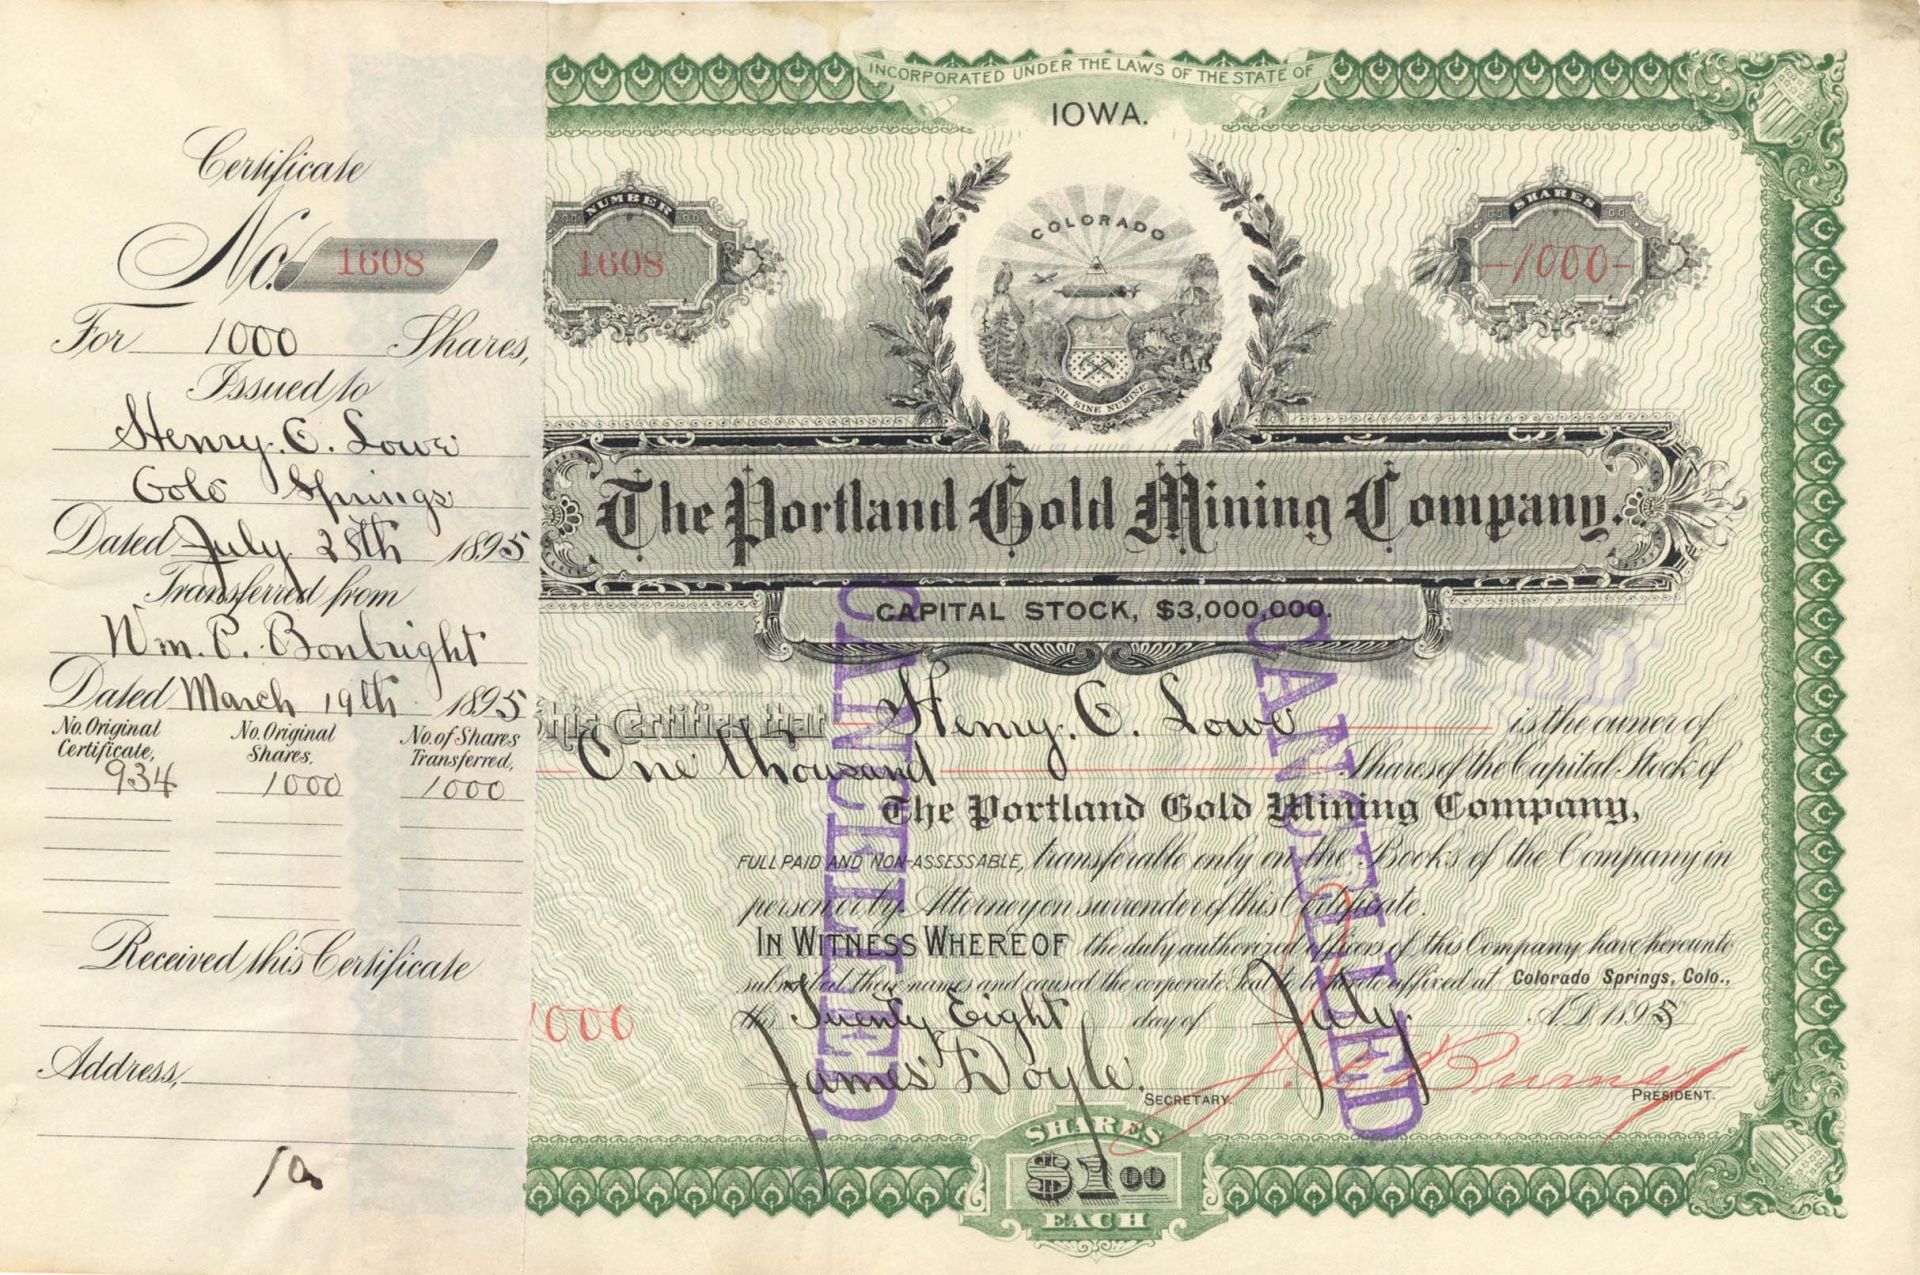 Certificate
No. 1608
For 1000 Shares,
Issued to
Henry. C. Lowe
Colo Springs
Dated July 28th 1895
Transferred from
Wm. P. Bonbright
Dated March 19th 1895
No. Original Certificate, No. Original Shares, No. of Shares Transferred,
934 1000 1000
Received this Certificate
Address,
INCORPORATED UNDER THE LAWS OF THE STATE OF
IOWA.
NUMBER
1608
COLORADO
NIL SINE NUMINE
SHARES
-1000-
The Portland Gold Mining Company.
CAPITAL STOCK, $3,000,000.
This Certifies that Henry. C. Lowe is the owner of
One thousand Shares of the Capital Stock of
The Portland Gold Mining Company,
FULL PAID AND NON-ASSESSABLE, transferable only on the Books of the Company in
person or by Attorney on surrender of this Certificate.
IN WITNESS WHEREOF the duly authorized officers of this Company have hereunto
subscribed their names and caused the corporate Seal to be hereto affixed at Colorado Springs, Colo.,
this Twenty Eight day of July A.D. 1895
1000
James Doyle.
SECRETARY.
Burns
PRESIDENT.
SHARES
$1.00
EACH
CANCELLED.
CANCELLED